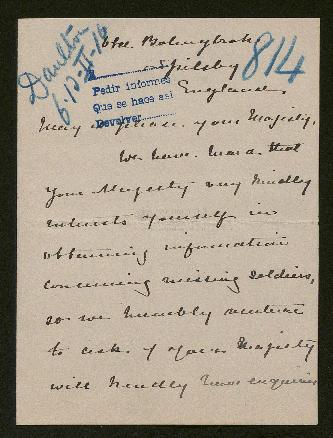 Old Bolingbroke
814
Spilsby
England.
Daulton
6-12-II-16
Pedir informes
Que se haos asi
Devolver
May it please your Majesty,
We have heard that
Your Majesty very kindly
interests yourself in
obtaining information
concerning missing soldiers,
so we humbly venture
to ask if Your Majesty
will kindly have enquiries